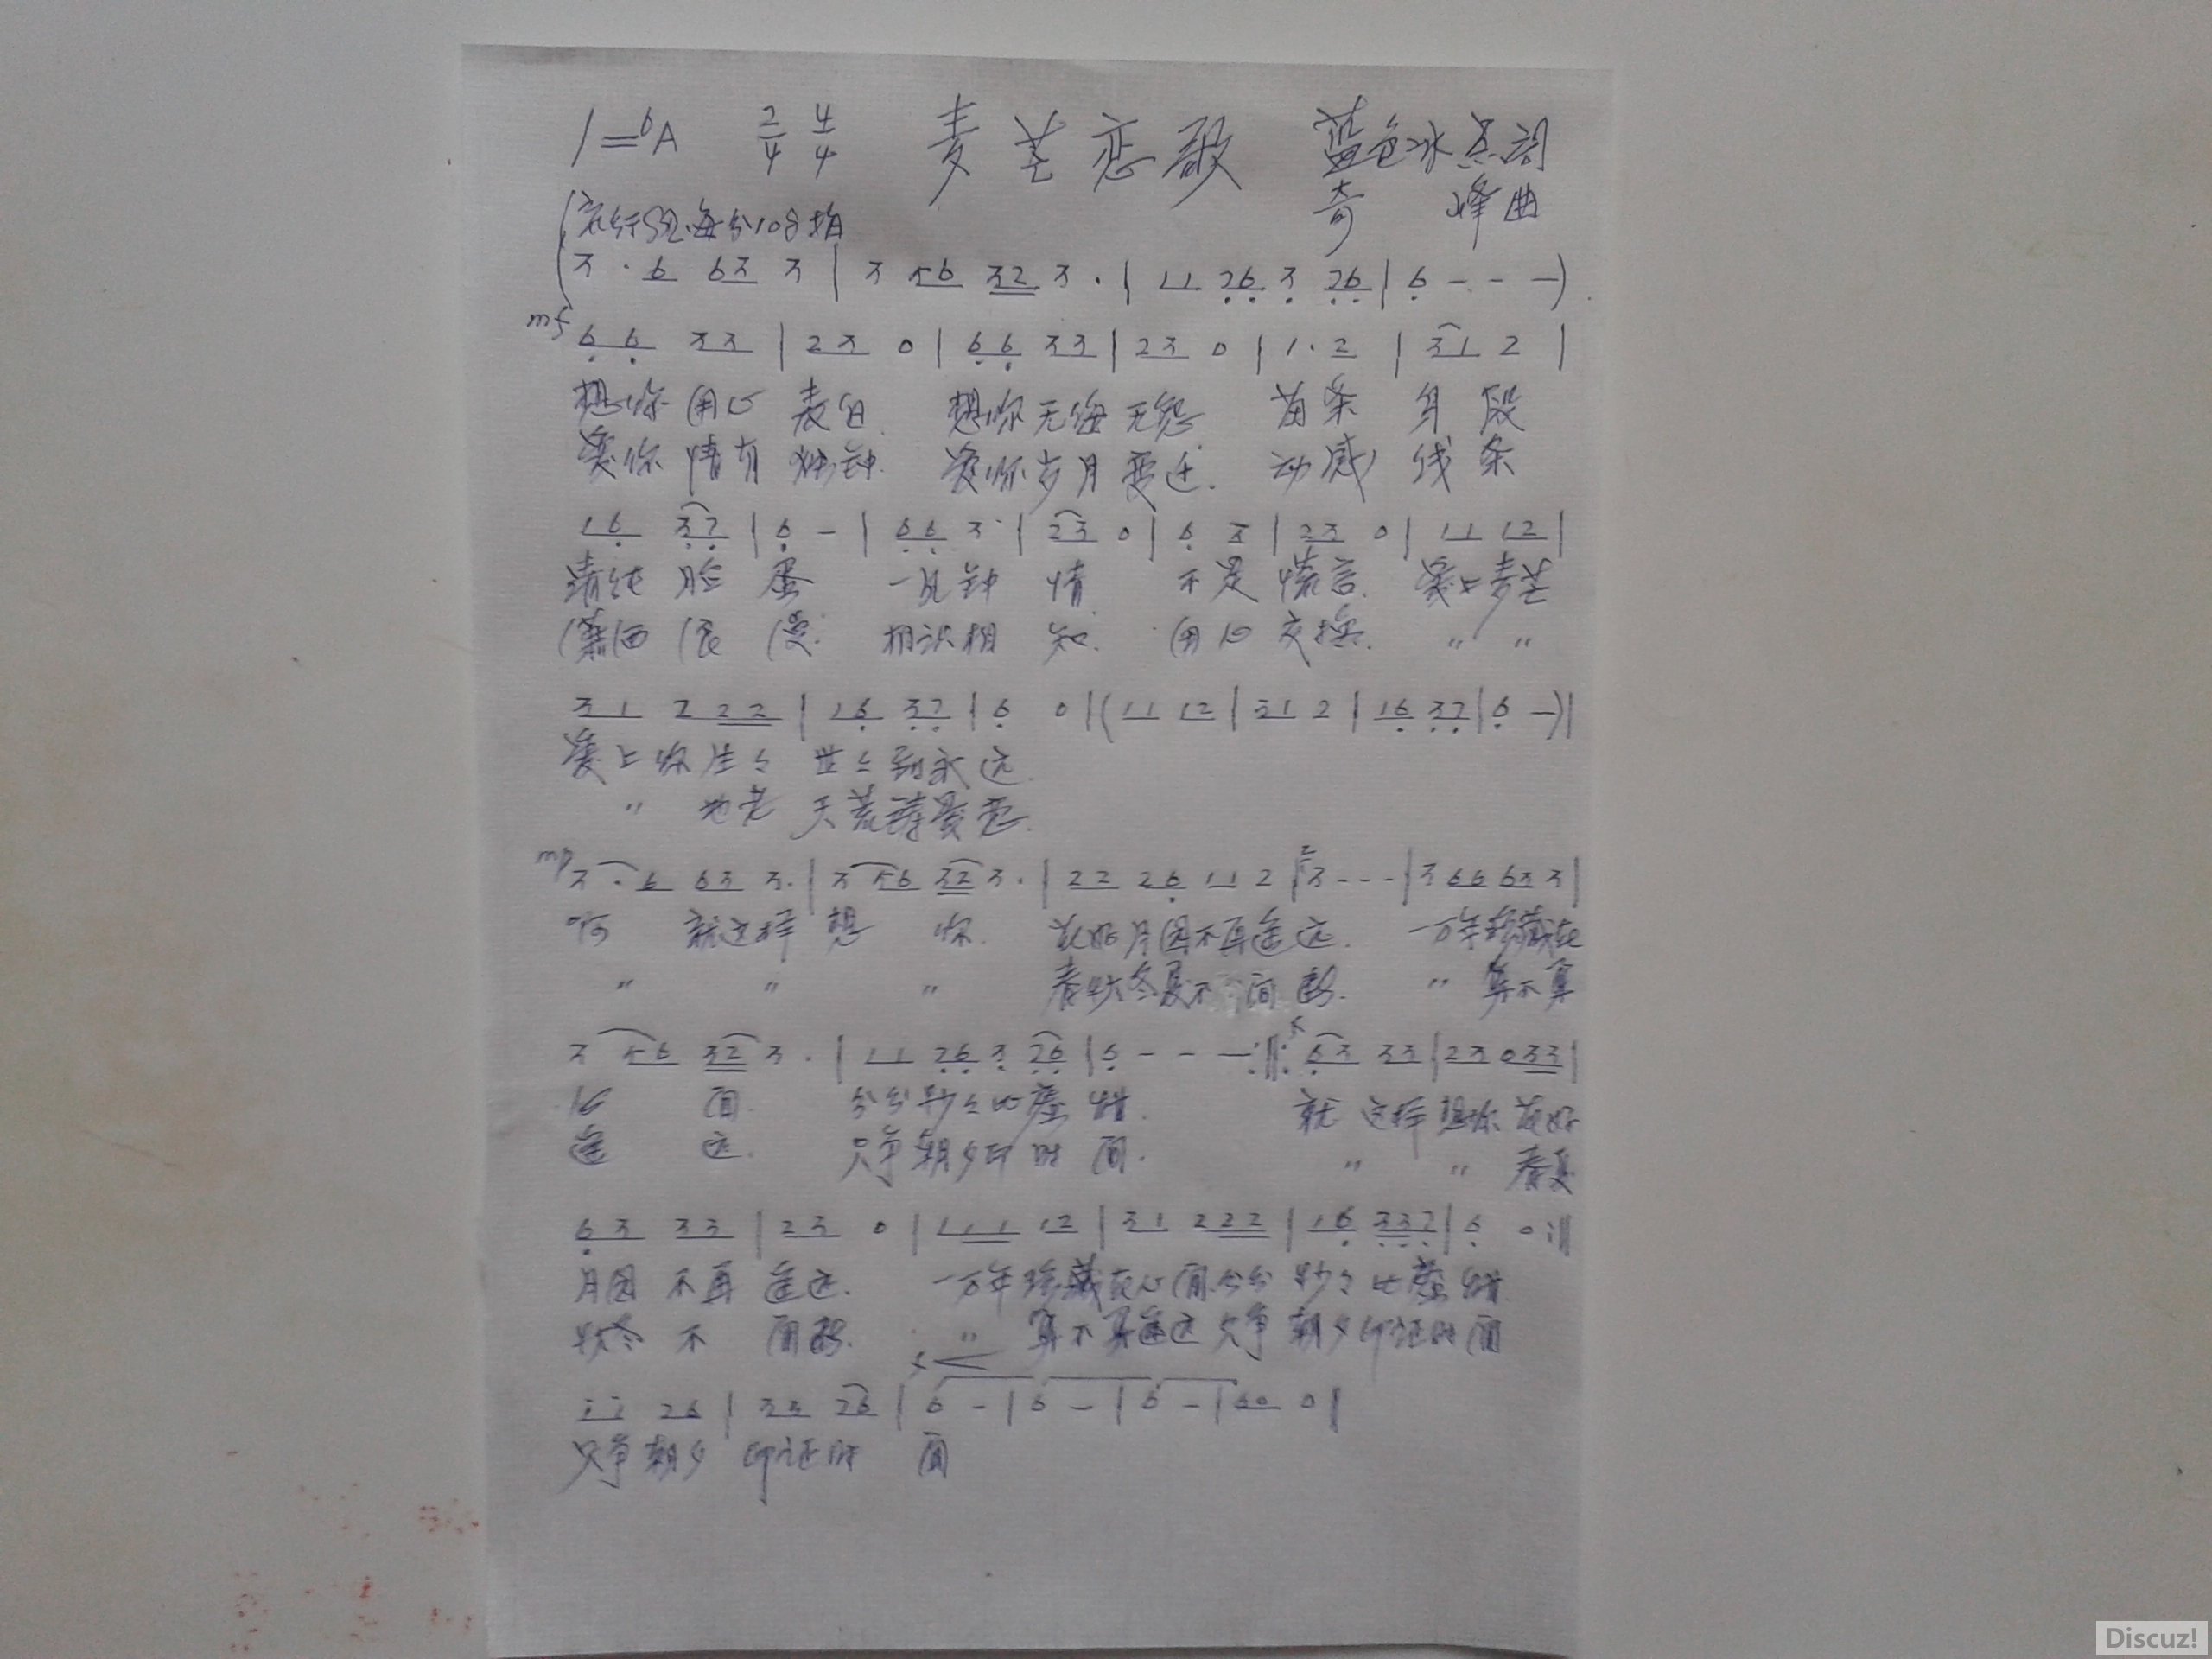 1=♭A 2/4 4/4 麦芒恋歌 蓝色冰点词
奇 峰曲
每分108拍
(3 · 6 63 3 | 3 56 32 3 · | 11 26 3 26 | 6 - - -)
mf 66 33 | 23 0 | 66 33 | 23 0 | 1·2 | 31 2 |
想你 用心 表白 想你无悔无怨 苗条 身 段
爱你 情有 独钟 爱你岁月变迁. 动感 线条
16 37 | 6 - | 66 3· | 23 0 | 6 3 | 23 0 | 11 12 |
清纯 脸 蛋 一见钟 情 不是 慌言. 爱上麦芒
潇洒 浪 漫. 相识相 知. 用心 交换. " "
31 2 22 | 16 37 | 6 0 | (11 12 | 31 2 | 16 37 | 6 -) |
爱上你生々 世々到永远.
" 地老 天荒
mp 3 · 6 63 3· | 3 56 32 3· | 22 26 11 2 | 3 - - - | 3 66 63 3 |
啊 就这样 想 你. 花好月圆不再遥远. 一万年珍藏在
" " " 春秋冬夏不 间断. " 算不算
3 56 32 3 · | 11 26 3 26 | 6 - - - :‖: 63 33 | 23 0 33 |
心 间. 分分秒々比 就 这样 想你 花好
遥 远. 只争朝夕印 时 间. " " 春夏
63 33 | 23 0 | 111 12 | 31 222 | 16 337 | 6 0 :‖
月圆 不再 遥远. 一万年珍藏在心间分分 秒々比
秋冬 不 间断. " 算不算遥远 只争 朝夕印证时间
33 26 | 33 26 | 6 - | 6 - | 6 - | 60 0 |
只争 朝夕 印证时 间
Discuz!